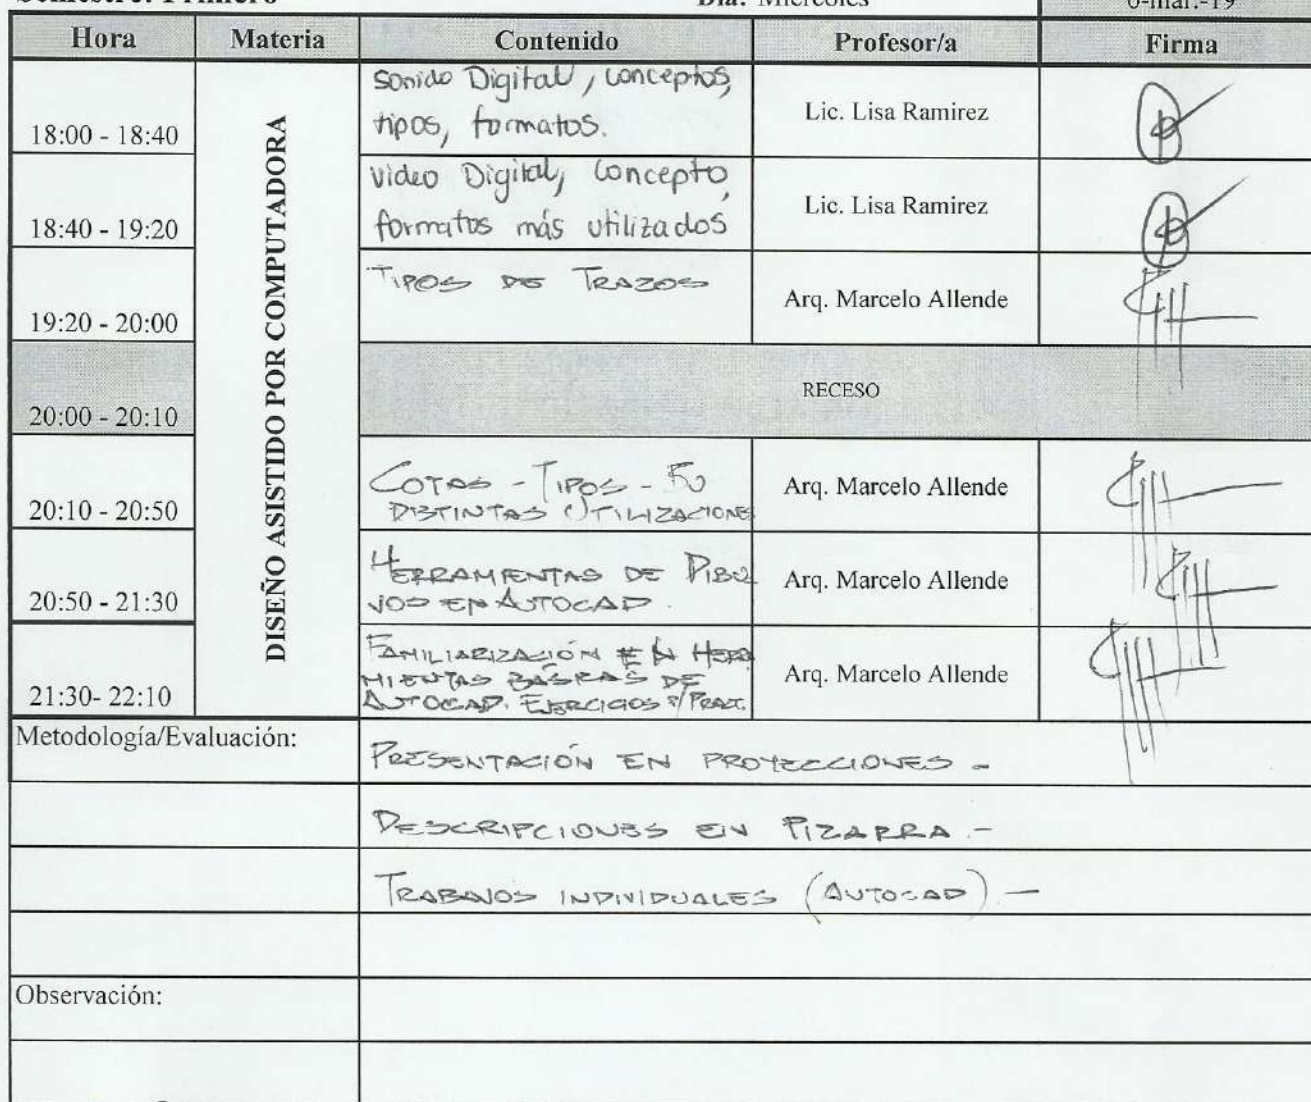 Semestre: Primero Día: Miércoles 6-mar.-19
Hora Materia Contenido Profesor/a Firma
DISEÑO ASISTIDO POR COMPUTADORA
18:00 - 18:40
sonido Digital, conceptos,
tipos, formatos.
Lic. Lisa Ramirez
18:40 - 19:20
video Digital, concepto,
formatos más utilizados
Lic. Lisa Ramirez
19:20 - 20:00
TIPOS DE TRAZOS
Arq. Marcelo Allende
20:00 - 20:10
RECESO
20:10 - 20:50
COTAS - TIPOS -
DISTINTAS UTILIZACIONES
Arq. Marcelo Allende
20:50 - 21:30
HERRAMIENTAS DE DIBU
JOS EN AUTOCAD.
Arq. Marcelo Allende
21:30- 22:10
FAMILIARIZACIÓN EN HERRA
MIENTAS BÁSICAS DE
AUTOCAD. EJERCICIOS P/PRACT.
Arq. Marcelo Allende
Metodología/Evaluación:
PRESENTACIÓN EN PROYECCIONES -
DESCRIPCIONES EN PIZARRA.-
TRABAJOS INDIVIDUALES (AUTOCAD) -
Observación: